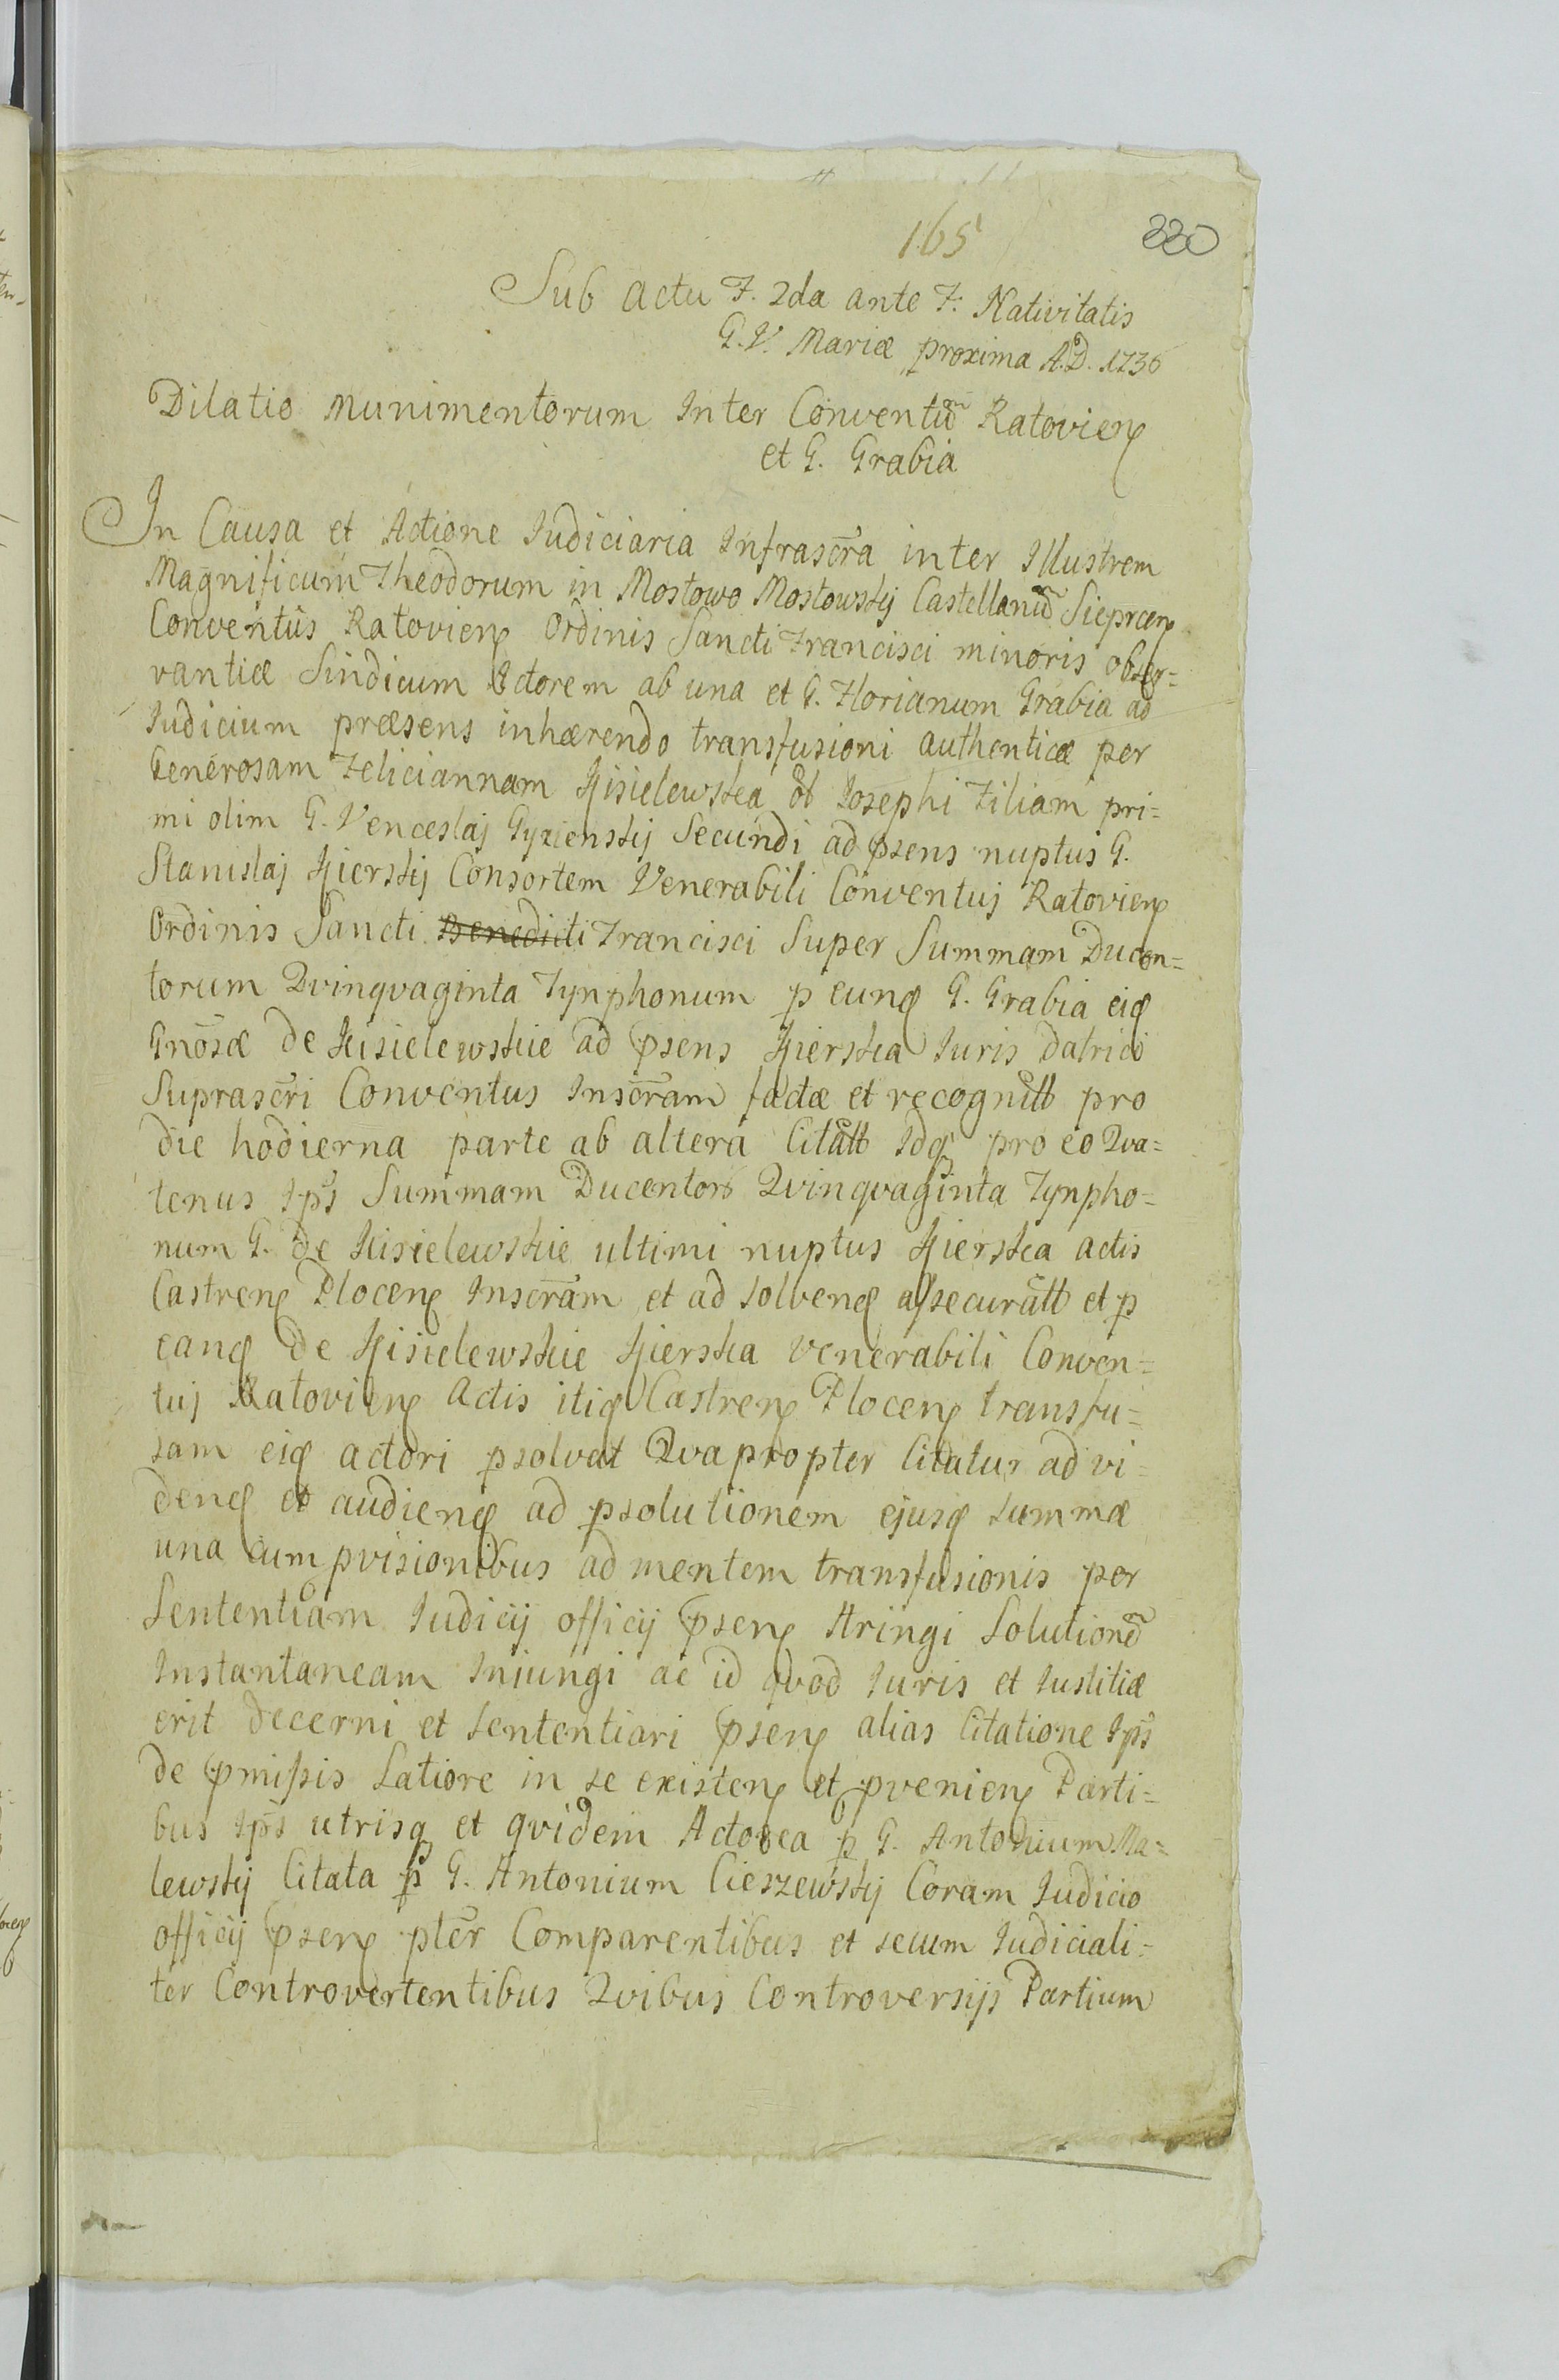 165
220
Sub Actu F. 2da ante F. Nativitatis
G. V. Mariæ proxima A.D. 1736
Dilatio Munimentorum Inter Conventũ Ratovien
et G. Grabia
In Causa et Actione Iudiciaria Infrascr̃a inter Illustrem
Magnificum Theodorum in Mostowo Mostowskij Castellanũ Sieprcen
Conventûs Ratovien Ordinis Sancti Francisci minoris obser=
vantiæ Sindicum Actorem ab una et G. Florianum Grabia ad
Iudicium præsens inhærendo transfusioni authenticæ per
Generosam Feliciannam Kisielewska ol Iosephi Filiam pri=
mi olim G. Venceslaj Gyzienskij Secundi ad p̃sens nuptus G.
Stanislaj Kierskij Consortem Venerabili Conventuj Ratovien
Ordinis Sancti Benedicti Francisci Super Summam Ducen=
torum Qvinqvaginta Tynphonum p eunq G. Grabia eiq
Gnõsæ de Kisielewskie ad p̃sens Kierska Iuris datrici
Suprascr̃i Conventus Inscr̃am factæ et recognitt pro
die hodierna parte ab altera Citatt Idq pro eo Qva=
tenus Ip̃s Summam Ducentor Qvinqvaginta Tynpho=
num G. de Kisielewskie ultimi nuptus Kierska actis
Castren Plocen Inscr̃am et ad solvenq assecuratt et p
eanq de Kisielewskie Kierska venerabili Conven=
tuj Ratovien Actis itiq Castren Plocen transfu=
sam eiq actori psolvat Qvapropter Citatur ad vi=
denq et audienq ad psolutionem ejusq summæ
una cum pvisionibus ad mentem transfusionis per
Sententiam Iudicij officij p̃sen stringi Solutionẽ
Instantaneam Iniungi ac id qvod Iuris et Iustitiæ
erit decerni et sententiari p̃sen alias Citatione Ip̃s
de p̃missis Latiore in se existen et pvenien Parti=
bus Ip̃s utrisq et qvidem Actorea p G. Antonium Ma=
lewskij Citata p G. Antonium Cieszewskij Coram Iudicio
officij p̃sen pter̃ Comparentibus et secum Iudiciali=
ter Controvertentibus Qvibus Controversijs Partium